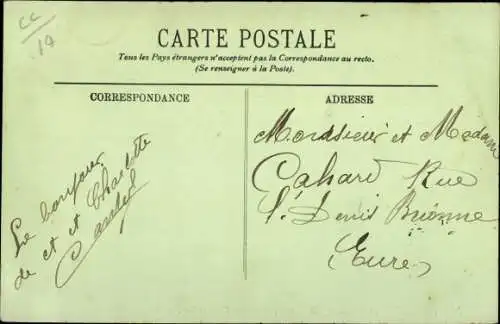 CC
19
CARTE POSTALE
Tous les Pays étrangers n'acceptent pas la Correspondance au recto.
(Se renseigner à la Poste).
CORRESPONDANCE
ADRESSE
Le bonjour
de et et Charlotte
Monsieur et Madam
Cahard Rue
St Denis Brionne
(Eure)